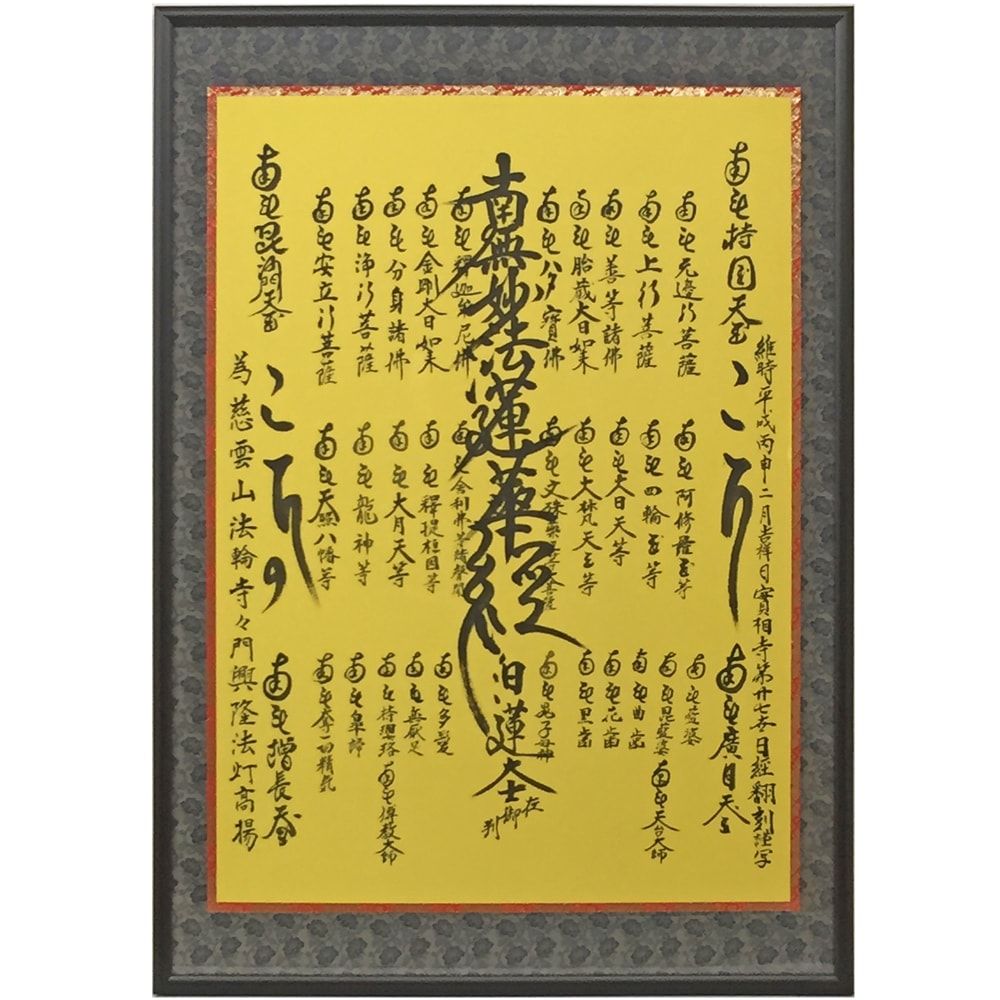 南無持国天王
維時平成丙申二月吉祥日實相寺第廿七世日経翻刻謹写
南無无邊行菩薩
南無上行菩薩
南無善等諸佛
南無胎蔵大日如来
南無多寳佛
南無妙法蓮華経
南無釋迦牟尼佛
南無金剛大日如来
南無分身諸佛
南無浄行菩薩
南無安立行菩薩
南無毘沙門天王
南無阿修羅王等
南無四輪王等
南無大日天等
南無大梵天王等
南無舎利弗等諸聲聞
南無釋提桓因等
南無大月天等
南無龍神等
南無天照八幡等
南無廣目天王
南無藍婆
南無毘藍婆
南無曲歯
南無花歯
南無黒歯
南無鬼子母神
南無天台大師
日蓮大士
在御判
南無多髪
南無無厭足
南無持瓔珞
南無皐諦
南無奪一切精気
南無傳教大師
南無増長天王
為慈雲山法輪寺々門興隆法灯高揚